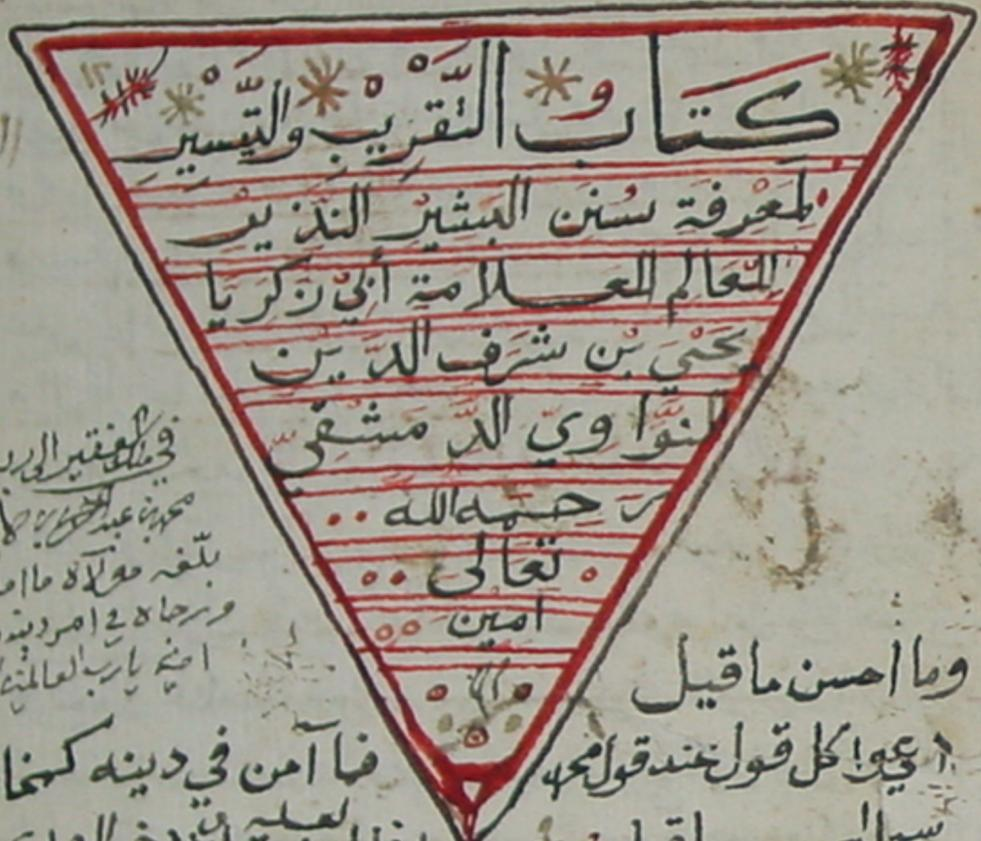 كتاب التقريب والتيسير
لمعرفة سنن البشير النذير
للعالم العلامة أبي زكريا
يحيى بن شرف الدين
النواوي الدمشقي
رحمه الله
تعالى
امين
في ملك الفقير الى
محمد بن عبد
بلغه مولاه ما
ورجاه في امر دينه
امين يارب العالمين
وما أحسن ما قيل
دعوا كل قول عند قول محمد
فما آمن في دينه كمخا